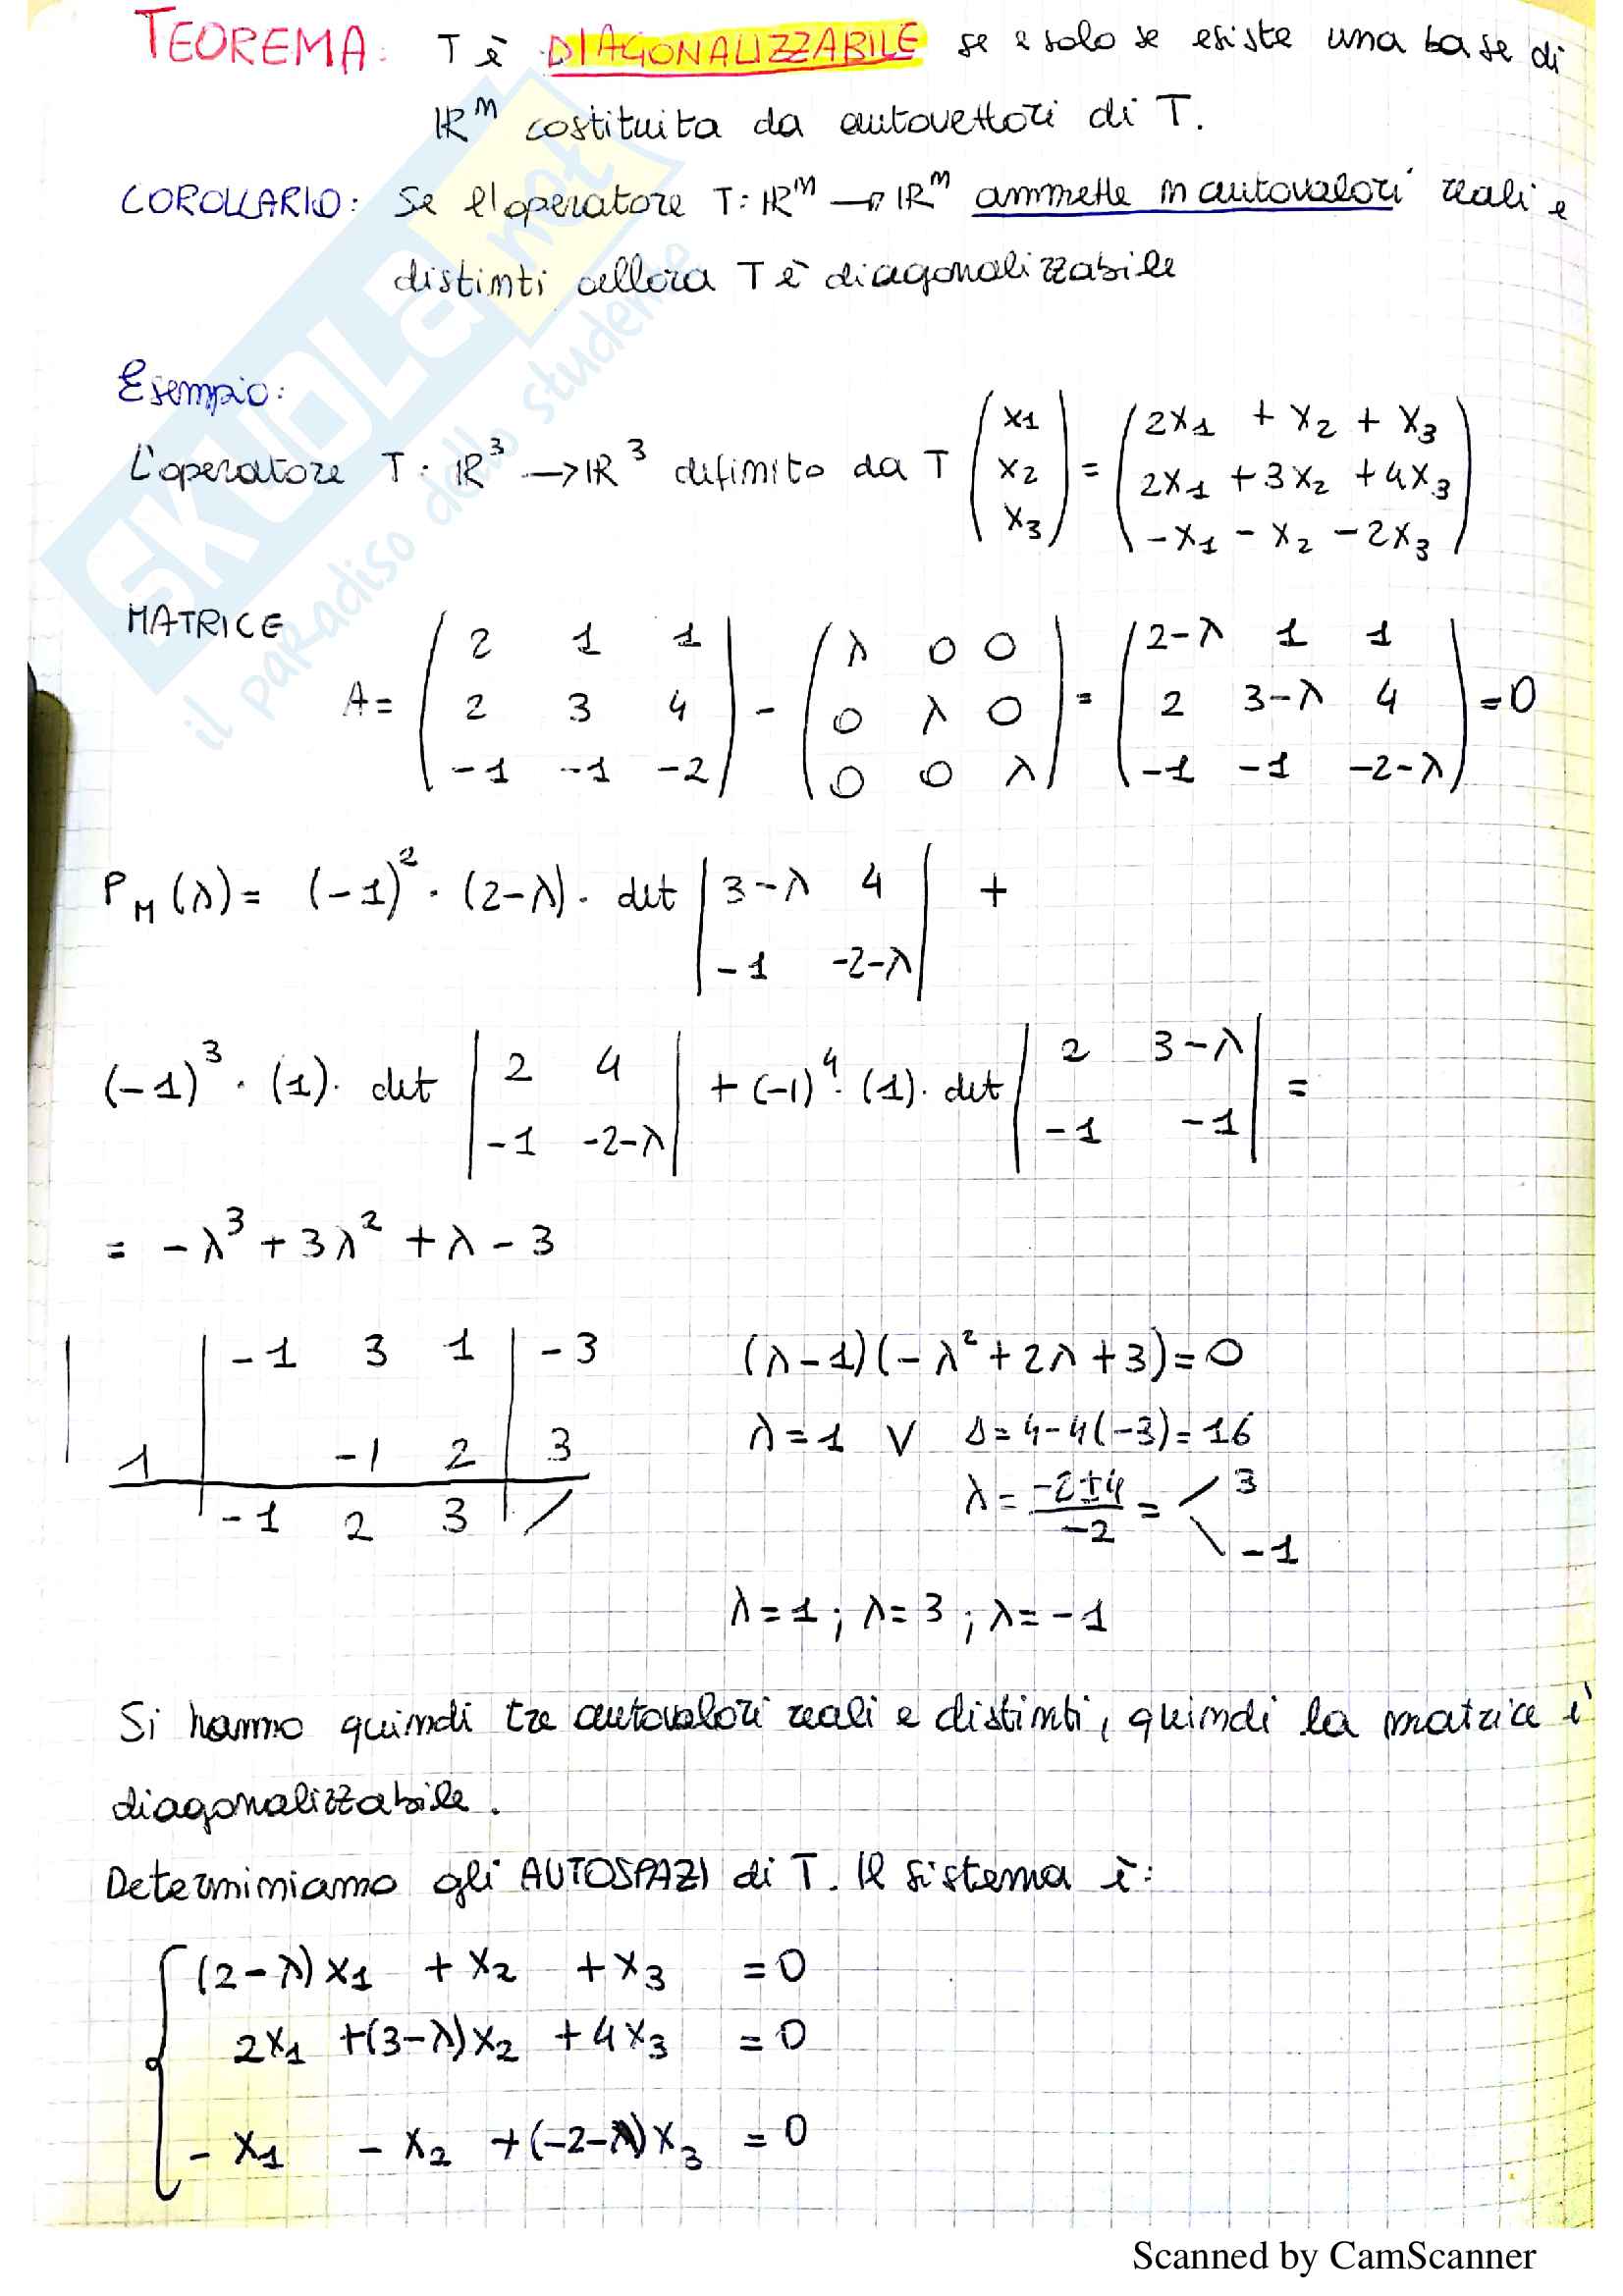 TEOREMA: T è DIAGONALIZZABILE se e solo se esiste una base di
ℝⁿ costituita da autovettori di T.
COROLLARIO: Se l'operatore T: ℝⁿ → ℝⁿ ammette n autovalori reali e
distinti allora T è diagonalizzabile
SKUOLA.net
il paradiso dello studente
Esempio:
L'operatore T: ℝ³ → ℝ³ definito da T (x1 x2 x3) = (2x1 + x2 + x3
2x1 + 3x2 + 4x3
-x1 - x2 - 2x3)
MATRICE
A = (2 1 1 | - (λ 0 0 | = (2-λ 1 1 |
2 3 4 0 λ 0 2 3-λ 4 = 0
-1 -1 -2) 0 0 λ) -1 -1 -2-λ)
P_M(λ) = (-1)² · (2-λ) · det |3-λ 4| +
|-1 -2-λ|
(-1)³ · (1) · det |2 4| + (-1)⁴ · (1) · det |2 3-λ| =
|-1 -2-λ| |-1 -1|
= -λ³ + 3λ² + λ - 3
| | -1 3 1 | -3
1 | -1 2 | 3
| -1 2 3 | /
(λ-1)(-λ²+2λ+3)=0
λ=1 ∨ Δ=4-4(-3)=16
λ = (-2±4)/-2 = 3
-1
λ=1; λ=3; λ=-1
Si hanno quindi tre autovalori reali e distinti, quindi la matrice è
diagonalizzabile.
Determiniamo gli AUTOSPAZI di T. Il sistema è:
{(2-λ)x1 + x2 + x3 = 0
2x1 +(3-λ)x2 + 4x3 = 0
- x1 - x2 +(-2-λ)x3 = 0
Scanned by CamScanner